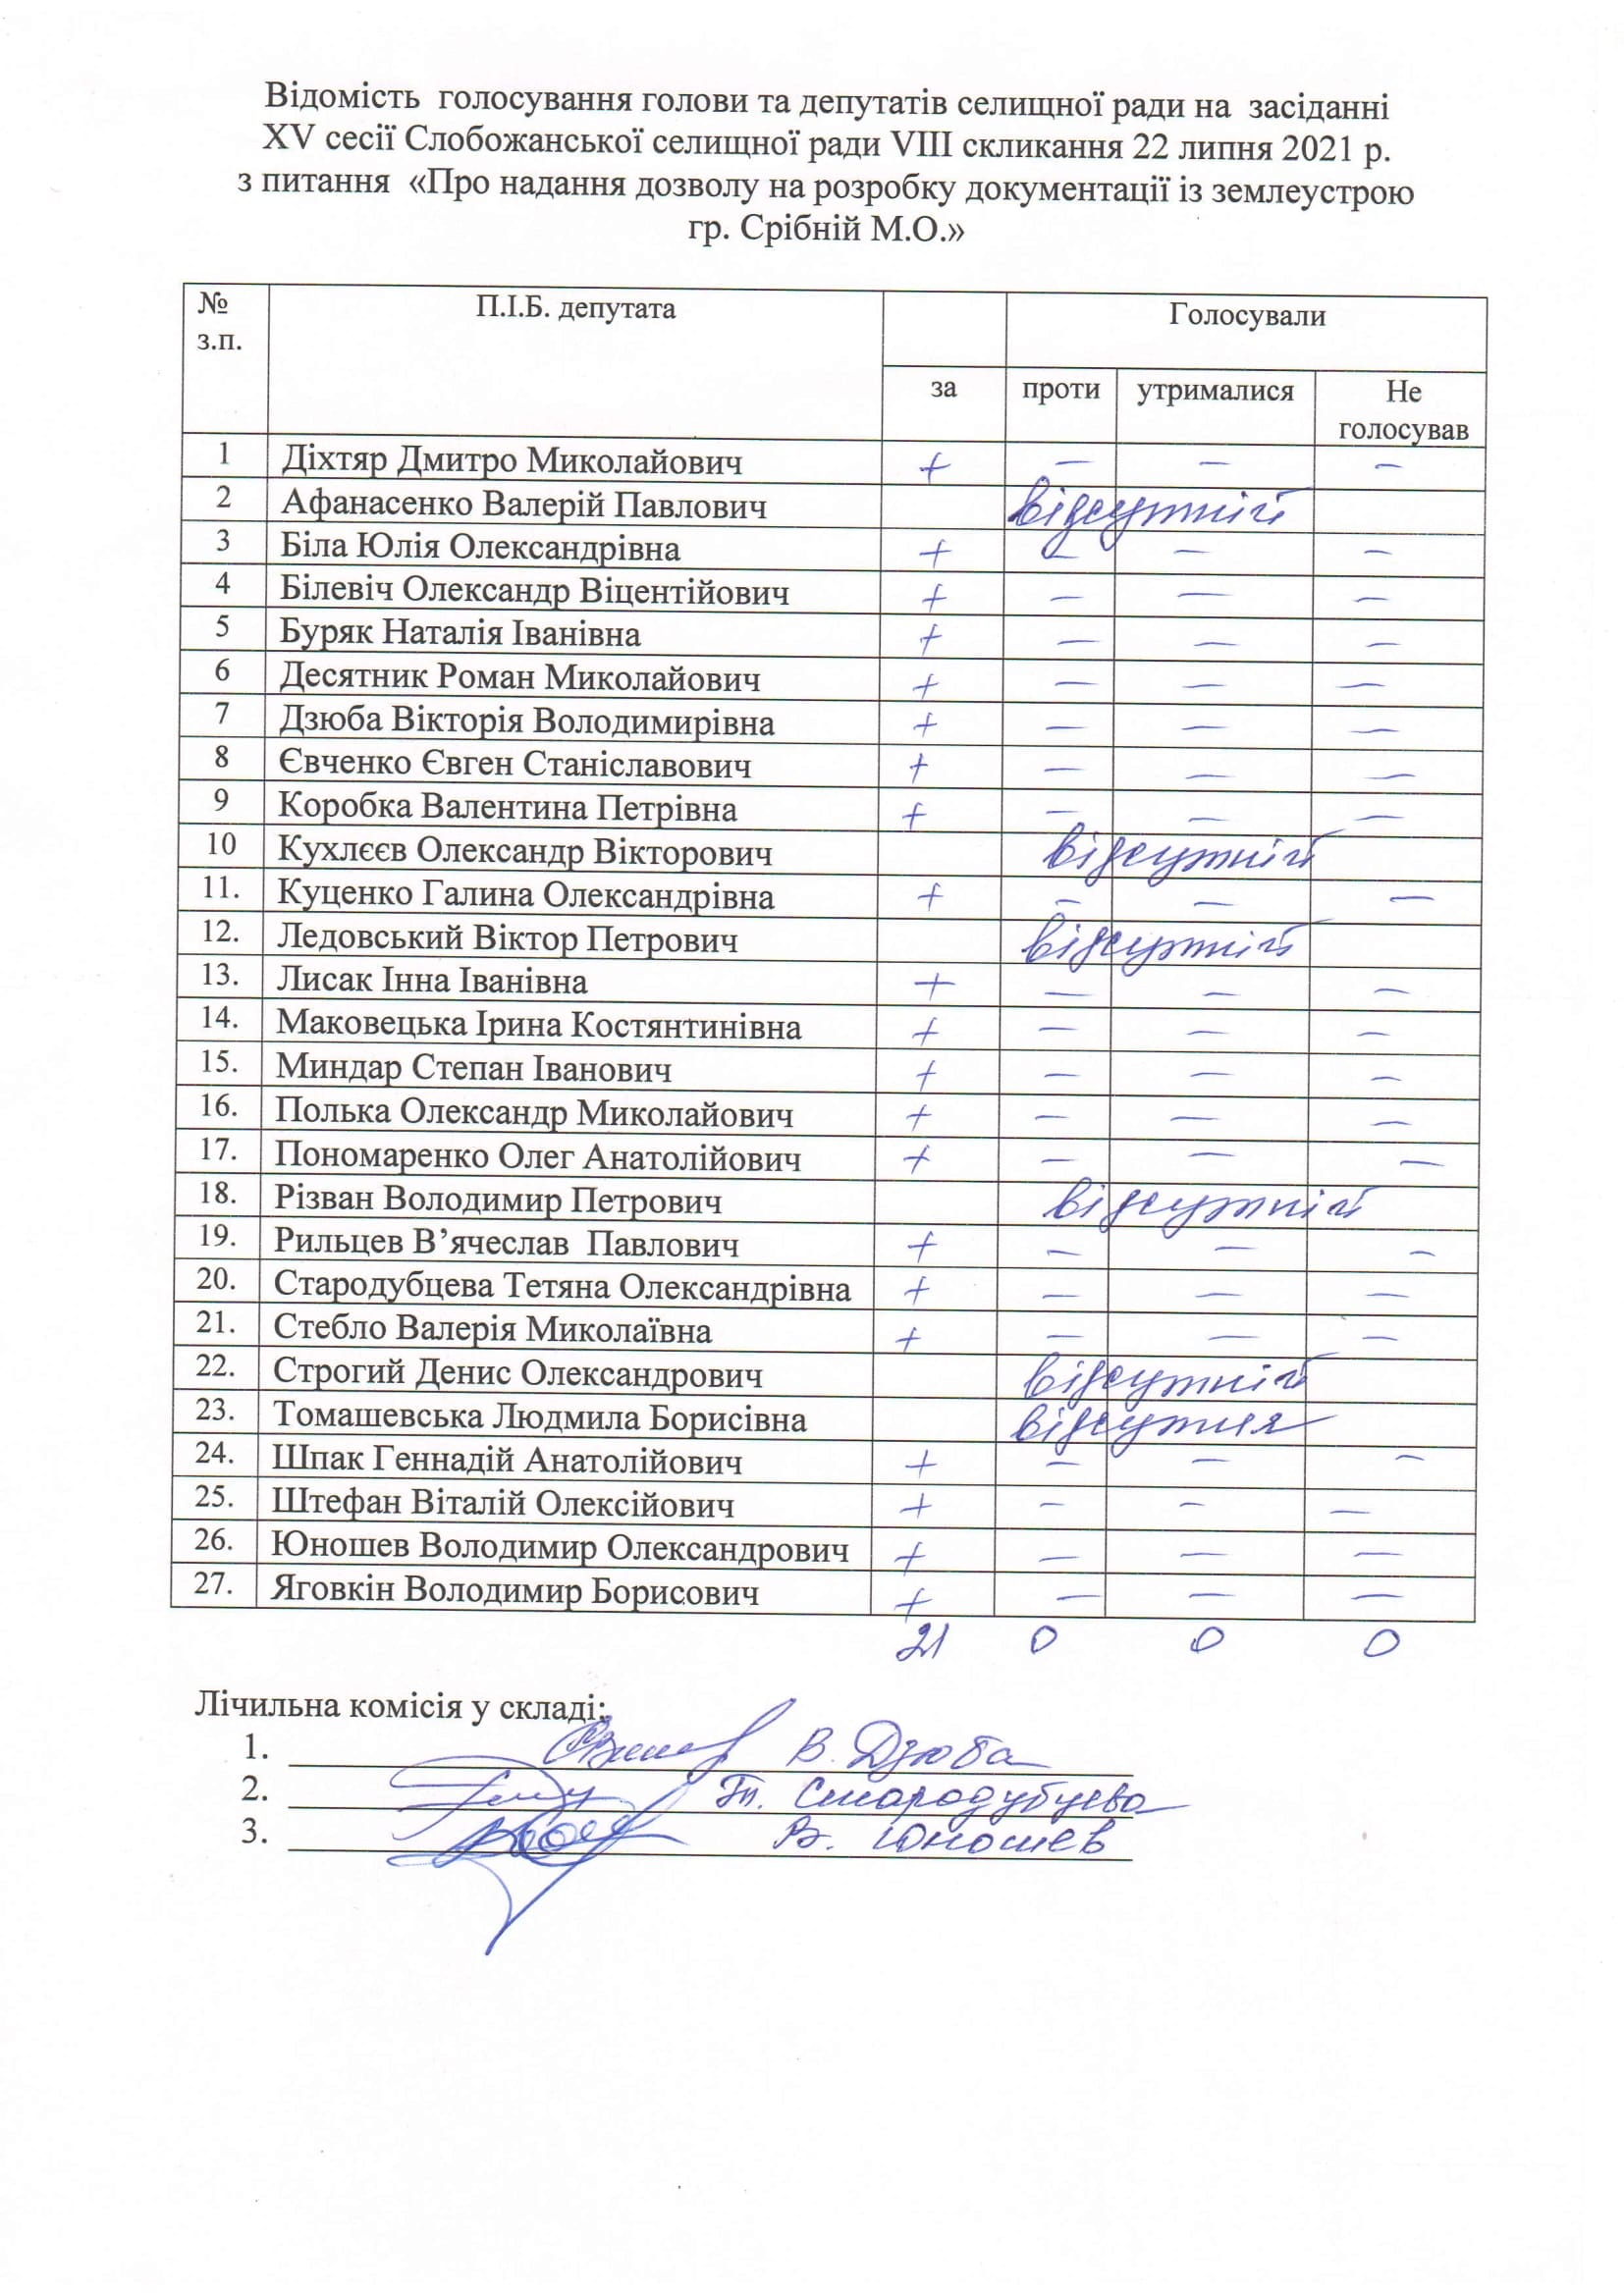 Відомість голосування голови та депутатів селищної ради на засіданні
XV сесії Слобожанської селищної ради VIII скликання 22 липня 2021 р.
з питання «Про надання дозволу на розробку документації із землеустрою
гр. Срібній М.О.»
№ з.п. П.І.Б. депутата Голосували
за проти утрималися Не голосував
1 Діхтяр Дмитро Миколайович + — — —
2 Афанасенко Валерій Павлович відсутній
3 Біла Юлія Олександрівна + — — —
4 Білевіч Олександр Віцентійович + — — —
5 Буряк Наталія Іванівна + — — —
6 Десятник Роман Миколайович + — — —
7 Дзюба Вікторія Володимирівна + — — —
8 Євченко Євген Станіславович + — — —
9 Коробка Валентина Петрівна + — — —
10 Кухлєєв Олександр Вікторович відсутній
11. Куценко Галина Олександрівна + — — —
12. Ледовський Віктор Петрович відсутній
13. Лисак Інна Іванівна + — — —
14. Маковецька Ірина Костянтинівна + — — —
15. Миндар Степан Іванович + — — —
16. Полька Олександр Миколайович + — — —
17. Пономаренко Олег Анатолійович + — — —
18. Різван Володимир Петрович відсутній
19. Рильцев В’ячеслав Павлович + — — —
20. Стародубцева Тетяна Олександрівна + — — —
21. Стебло Валерія Миколаївна + — — —
22. Строгий Денис Олександрович відсутній
23. Томашевська Людмила Борисівна відсутня
24. Шпак Геннадій Анатолійович + — — —
25. Штефан Віталій Олексійович + — — —
26. Юношев Володимир Олександрович + — — —
27. Яговкін Володимир Борисович + — — —
21 0 0 0
Лічильна комісія у складі:
1. В. Дзюба
2. Стародубцева
3. В. Юношев